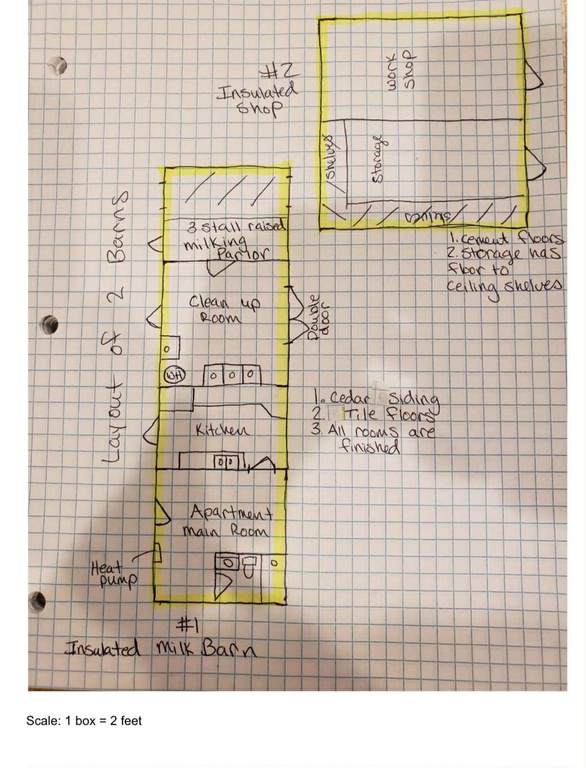 #2
Insulated
Shop
work
shop
Shelves
Storage
1. cement floors
2. Storage has
floor to
ceiling shelves
Layout of 2 Barns
3 stall raised
milking
Parlor
Clean up
Room
Double
door
WH
1. Cedar Siding
2. Tile Floors
3. All rooms are
finished
Kitchen
Apartment
main Room
Heat
pump
#1
Insulated milk Barn
Scale: 1 box = 2 feet